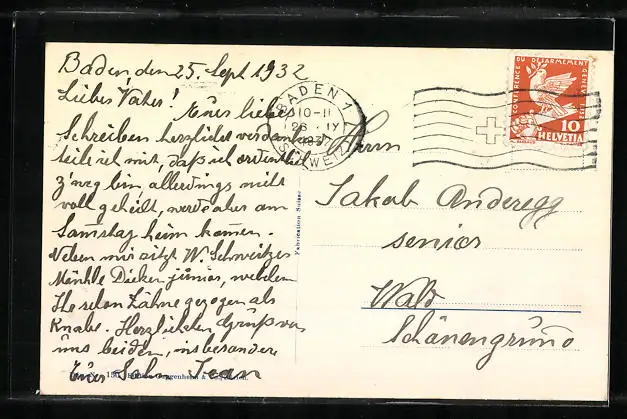 Baden, den 25. Sept 1932
Liebes Vater!
Eures liebes
Schreiben herzlichst verdankend
teile ich mit, daß ich ordentlich
z'weg bin, allerdings nicht
voll geheilt, werde aber am
Samstag heim kommen.
Neben mir sitzt W. Schweitzer
junior, welchem
Ihr schon Zähne gezogen als
Knabe. Herzlichen Gruß von
uns beiden, insbesondere
Euer Sohn Jean
Fabrication Suisse
BADEN 1
10-11
26. IX
1932
(SCHWEIZ)
CONFERENCE DU DESARMEMENT GENEVE 1932
10
HELVETIA
Herrn
Jakob Anderegg
senior
Wald
Schönengrund